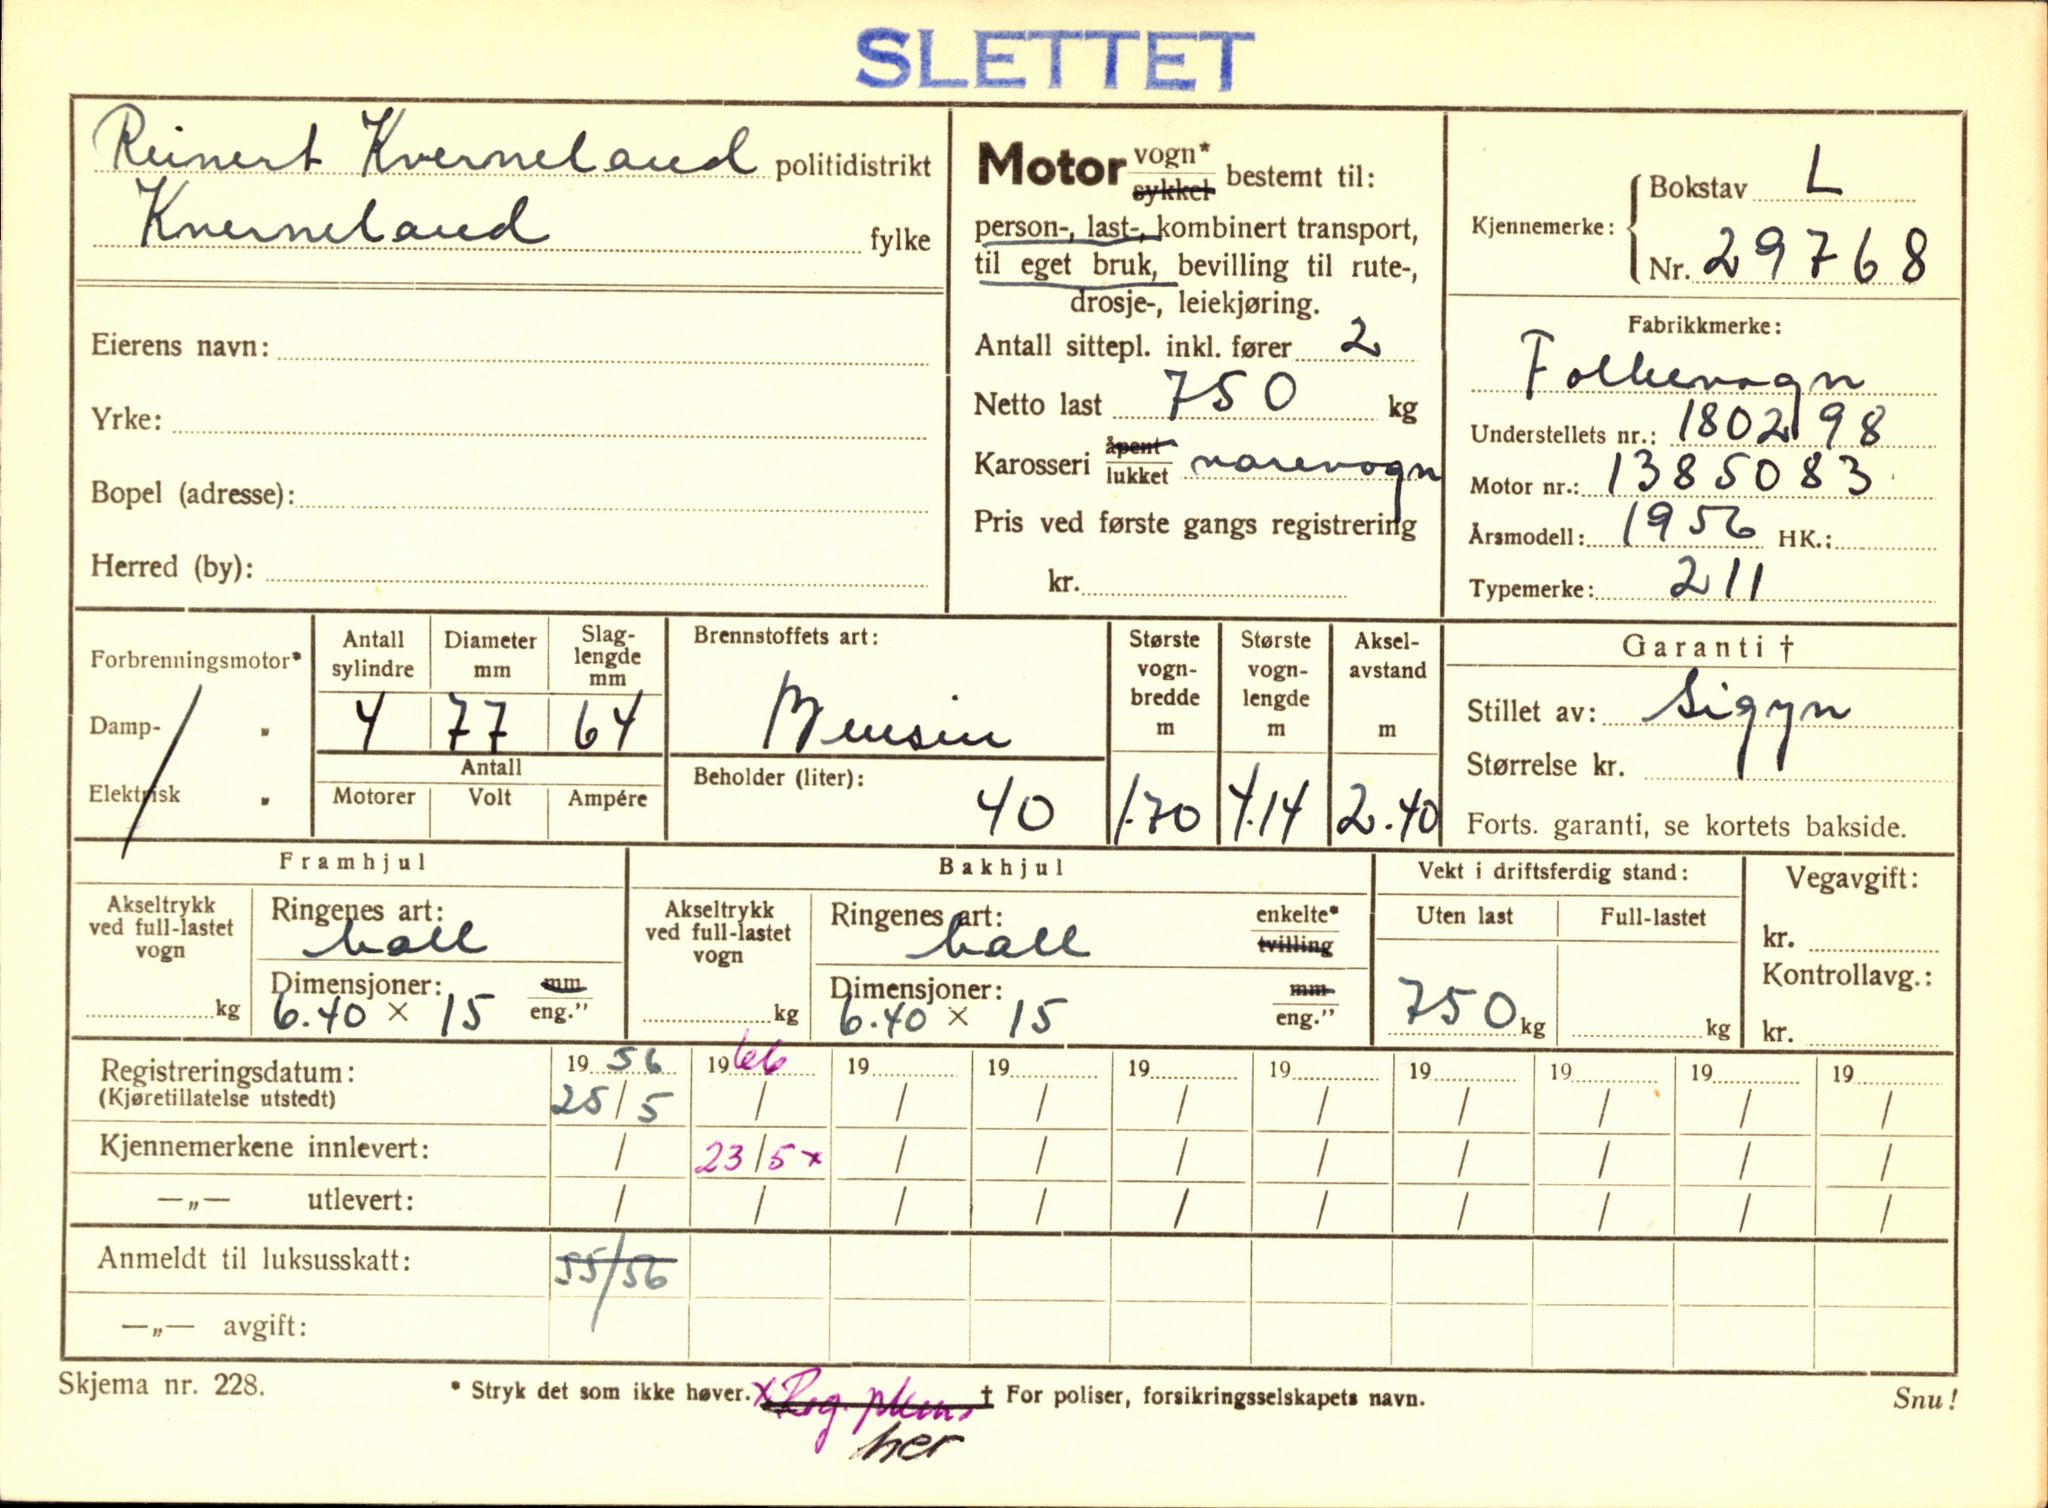 SLETTET
Reinert Kverneland politidistrikt
Kverneland fylke
Eierens navn:
Yrke:
Bopel (adresse):
Herred (by):
Motor vogn* sykkel bestemt til:
person-, last-, kombinert transport,
til eget bruk, bevilling til rute-,
drosje-, leiekjøring.
Antall sittepl. inkl. fører 2
Netto last 750 kg
Karosseri åpent lukket varevogn
Pris ved første gangs registrering
kr.
Kjennemerke: Bokstav L
Nr. 29768
Fabrikkmerke:
Folkevogn
Understellets nr.: 180298
Motor nr.: 1385083
Årsmodell: 1956 HK.:
Typemerke: 211
Forbrenningsmotor*
Damp- "
Elektrisk "
Antall sylindre 4
Diameter mm 77
Slag-lengde mm 64
Antall
Motorer Volt Ampére
Brennstoffets art:
Bensin
Beholder (liter):
40
Største vogn-bredde m 1.70
Største vogn-lengde m 4.14
Aksel-avstand m 2.40
Garanti †
Stillet av: Sigyn
Størrelse kr.
Forts. garanti, se kortets bakside.
Framhjul
Akseltrykk ved full-lastet vogn
kg
Ringenes art:
ball
Dimensjoner: mm
6.40 × 15 eng."
Bakhjul
Akseltrykk ved full-lastet vogn
kg
Ringenes art: enkelte*
ball tvilling
Dimensjoner: mm
6.40 × 15 eng."
Vekt i driftsferdig stand:
Uten last Full-lastet
750 kg kg
Vegavgift:
kr.
Kontrollavg.:
kr.
Registreringsdatum: 19 56 19 66 19 19 19 19 19 19 19 19
(Kjøretillatelse utstedt) 25/5 / / / / / / / / /
Kjennemerkene innlevert: / 23/5 x / / / / / / / /
—„— utlevert: / / / / / / / / / /
Anmeldt til luksusskatt: 55/56
—„— avgift:
Skjema nr. 228. * Stryk det som ikke høver. x Reg. † For poliser, forsikringsselskapets navn. Snu!
her